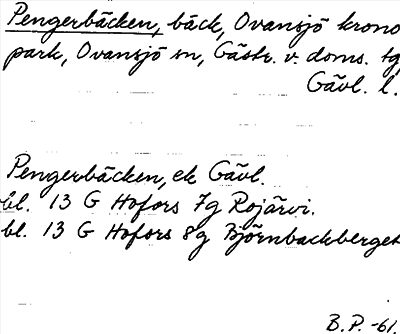 Pengerbäcken, bäck, Ovansjö krono
park, Ovansjö sn, Gästr. v. doms. tg,
Gävl. l.
Pengerbäcken, ek Gävl.
bl. 13 G Hofors 7g Rojärvi.
bl. 13 G Hofors 8g Björnbackberget
B.P. -61.